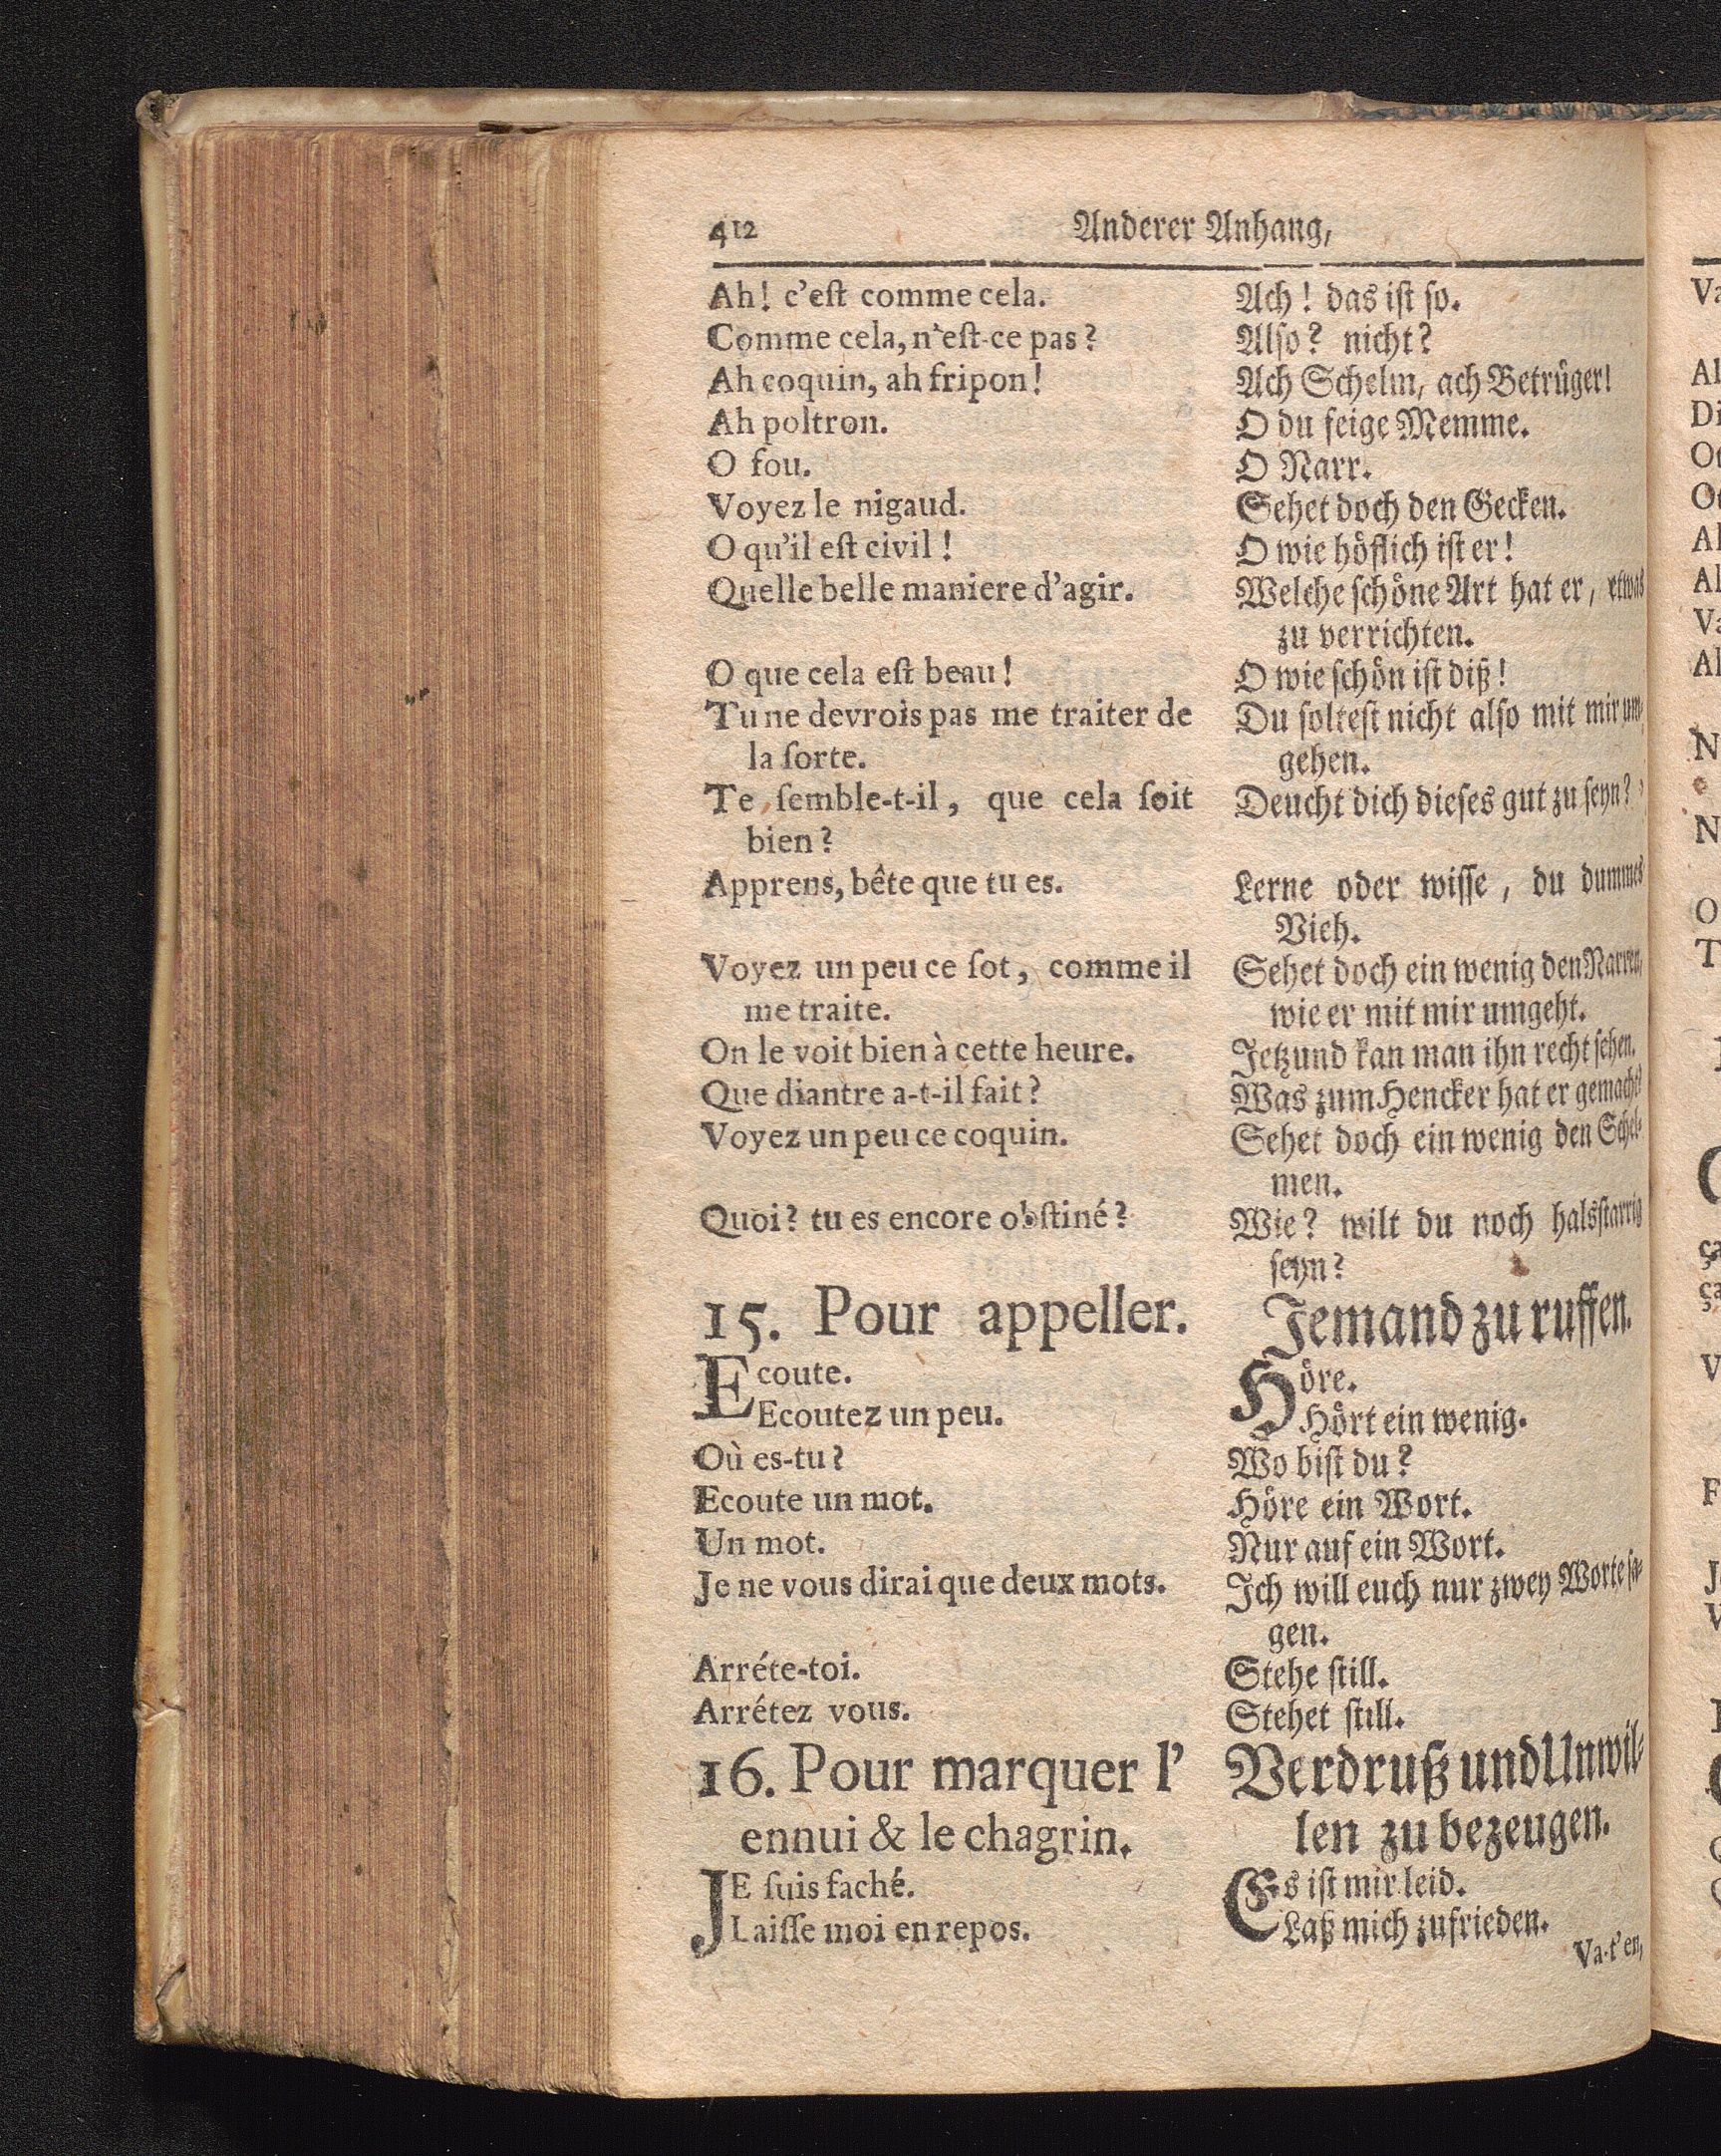 412 Anderer Anhang,
Ah! c'eſt comme cela.
Comme cela, n'eſt-ce pas?
Ah coquin, ah fripon!
Ah poltron.
O fou.
Voyez le nigaud.
O qu'il eſt civil!
Quelle belle maniere d'agir.
O que cela eſt beau!
Tu ne devrois pas me traiter de
la ſorte.
Te ſemble-t-il, que cela ſoit
bien?
Apprens, bête que tu es.
Voyez un peu ce ſot, comme il
me traite.
On le voit bien à cette heure.
Que diantre a-t-il fait?
Voyez un peu ce coquin.
Quoi? tu es encore obſtiné?
Ach! das iſt ſo.
Alſo? nicht?
Ach Schelm, ach Betrüger!
O du feige Memme.
O Narr.
Sehet doch den Gecken.
O wie höflich iſt er!
Welche ſchöne Art hat er, etwas
zu verrichten.
O wie ſchön iſt diß!
Du ſolteſt nicht alſo mit mir um-
gehen.
Deucht dich dieſes gut zu ſeyn?
Lerne oder wiſſe, du dummes
Vieh.
Sehet doch ein wenig den Narren,
wie er mit mir umgeht.
Jetzund kan man ihn recht ſehen.
Was zum Hencker hat er gemacht?
Sehet doch ein wenig den Schel-
men.
Wie? wilt du noch halsſtarrig
ſeyn?
15. Pour appeller.
Ecoute.
Ecoutez un peu.
Où es-tu?
Ecoute un mot.
Un mot.
Je ne vous dirai que deux mots.
Arréte-toi.
Arrétez vous.
Jemand zu ruffen.
Höre.
Hört ein wenig.
Wo biſt du?
Höre ein Wort.
Nur auf ein Wort.
Ich will euch nur zwey Worte ſa-
gen.
Stehe ſtill.
Stehet ſtill.
16. Pour marquer l'
ennui & le chagrin.
JE ſuis faché.
Laiſſe moi en repos.
Verdruß und Unwil-
len zu bezeugen.
Es iſt mir leid.
Laß mich zufrieden.
Va-t'en,